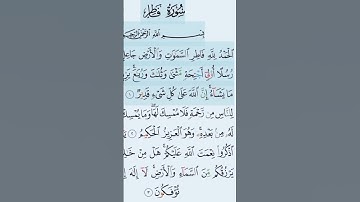 سُورَةُ فَاطِرٍ
بِسْمِ اللَّهِ الرَّحْمَٰنِ الرَّحِيمِ
الْحَمْدُ لِلَّهِ فَاطِرِ السَّمَٰوَٰتِ وَالْأَرْضِ جَاعِلِ
رُسُلًا أُو۟لِىٓ أَجْنِحَةٍ مَّثْنَىٰ وَثُلَٰثَ وَرُبَٰعَ يَزِ
مَا يَشَآءُ إِنَّ اللَّهَ عَلَىٰ كُلِّ شَىْءٍ قَدِيرٌ ١
لِلنَّاسِ مِن رَّحْمَةٍ فَلَا مُمْسِكَ لَهَا وَمَا يُمْسِكْ
لَهُۥ مِنۢ بَعْدِهِۦ وَهُوَ الْعَزِيزُ الْحَكِيمُ ٢
اذْكُرُوا۟ نِعْمَتَ اللَّهِ عَلَيْكُمْ هَلْ مِنْ خَٰلِ
يَرْزُقُكُم مِّنَ السَّمَآءِ وَالْأَرْضِ لَآ إِلَٰهَ إِ
تُؤْفَكُونَ ٣